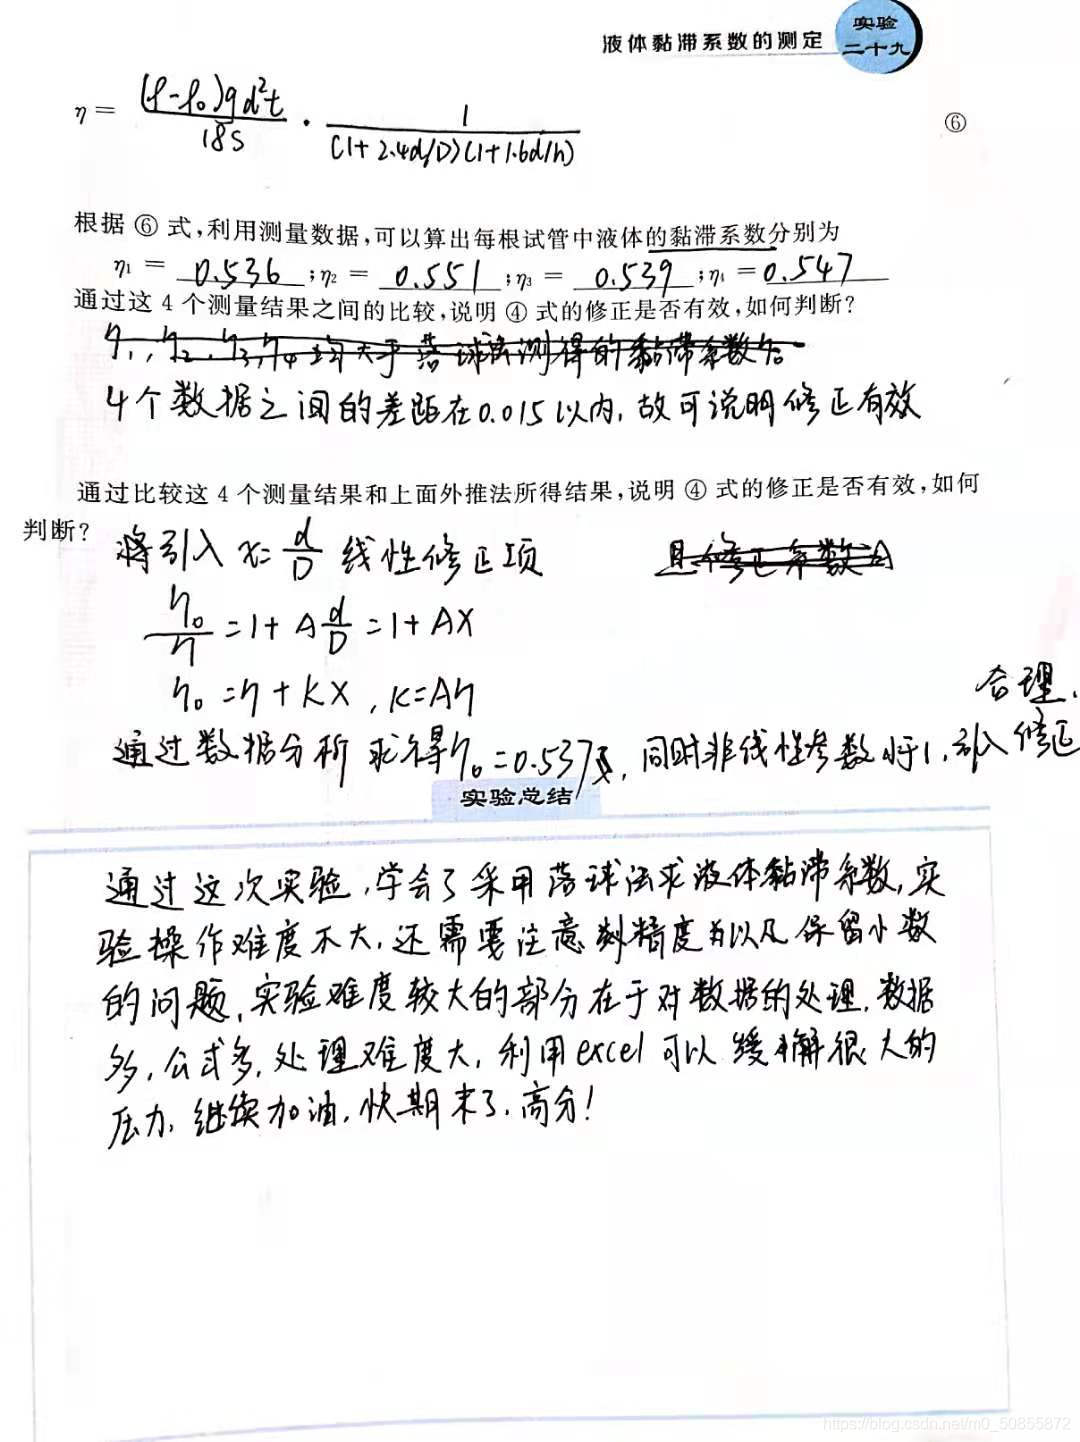 液体黏滞系数的测定
实验
二十九
η = (ρ-ρ₀)gd²t / 18S · 1 / (1+2.4d/D)(1+1.6d/h) ⑥
根据 ⑥ 式,利用测量数据,可以算出每根试管中液体的黏滞系数分别为
η₁ = 0.536 ;η₂ = 0.551 ;η₃ = 0.539 ;η₄ = 0.547
通过这 4 个测量结果之间的比较,说明 ④ 式的修正是否有效,如何判断?
η₁,η₂,η₃,η₄均大于落球法测得的黏滞系数
4个数据之间的差距在0.015以内,故可说明修正有效
通过比较这 4 个测量结果和上面外推法所得结果,说明 ④ 式的修正是否有效,如何
判断?
将引入 x= d/D 线性修正项
且修正系数
η₀/η =1+A d/D =1+AX
η₀=η+KX,K=Aη
合理.
通过数据分析 求得η₀=0.537,同时非线性参数小于1,引入修正
实验总结
通过这次实验,学会了采用落球法求液体黏滞系数,实
验操作难度不大,还需要注意精度以及保留小数
的问题,实验难度较大的部分在于对数据的处理,数据
多,公式多,处理难度大,利用excel可以缓解很大的
压力,继续加油,快期末了,高分!
https://blog.csdn.net/m0_50855872